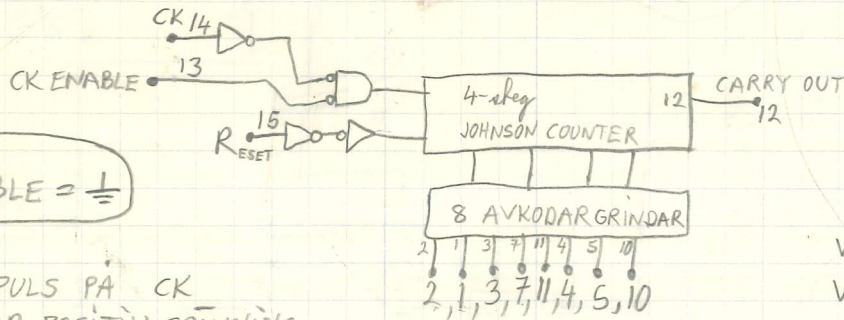 CK 14
CK ENABLE 13
RESET 15
4-steg
JOHNSON COUNTER
12
CARRY OUT
12
BLE =
8 AVKODARGRINDAR
2 1 3 7 11 4 5 10
2, 1, 3, 7, 11, 4, 5, 10
PULS PÅ CK
POSITIV
V
V